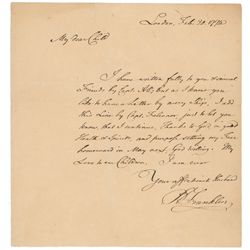 London, Feb. 20. 1773
My dear Child
I have written fully to you & several
Friends by Capt. All; but as I know you
like to have a Letter by every Ship, I add
this Line by Capt. Falconer, just to let you
know, that I continue, Thanks to God, in good
Health & Spirits, and purpose setting my Face
homeward in May next, God willing. My
Love to our Children. I am ever
Your affectionate Husband
B Franklin